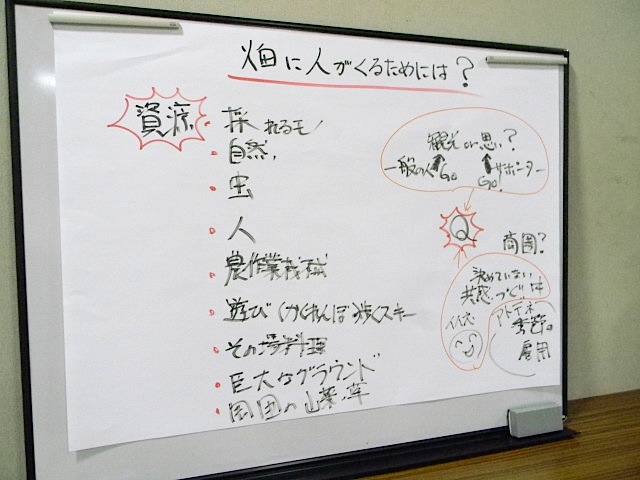 畑に人がくるためには?
資源
・採れるモノ
・自然
・虫
・人
・農作業機械
・遊び(かくれんぼ 歩くスキー
・その場料理
・巨大なグラウンド
・周囲の山菜、草
観光 or 思い?
一般の人 Go
サポーター Go!
Q
商圏?
決めていない
共感づくり中
イイネ
アトデネ
季節の
雇用